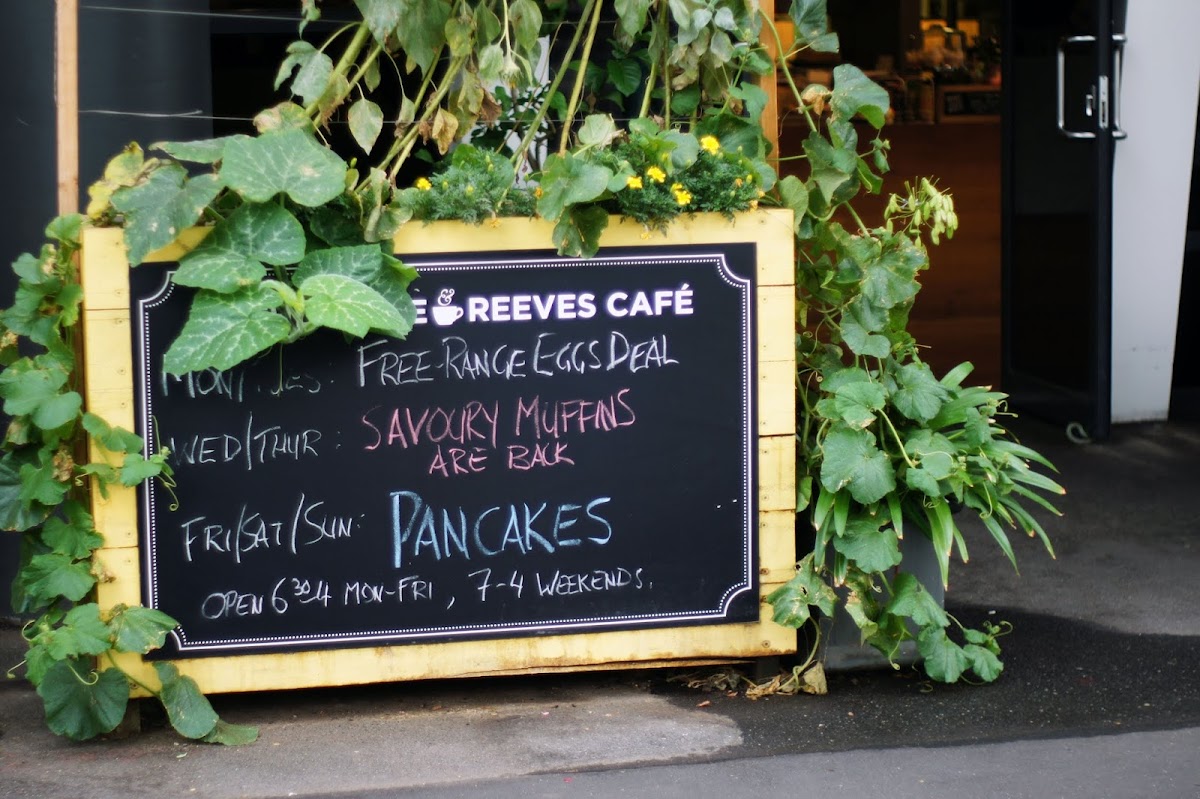 E & REEVES CAFÉ
MON/TUES: FREE-RANGE EGGS DEAL
WED/THUR: SAVOURY MUFFINS
ARE BACK
FRI/SAT/SUN: PANCAKES
OPEN 6³⁰-4 MON-FRI, 7-4 WEEKENDS.